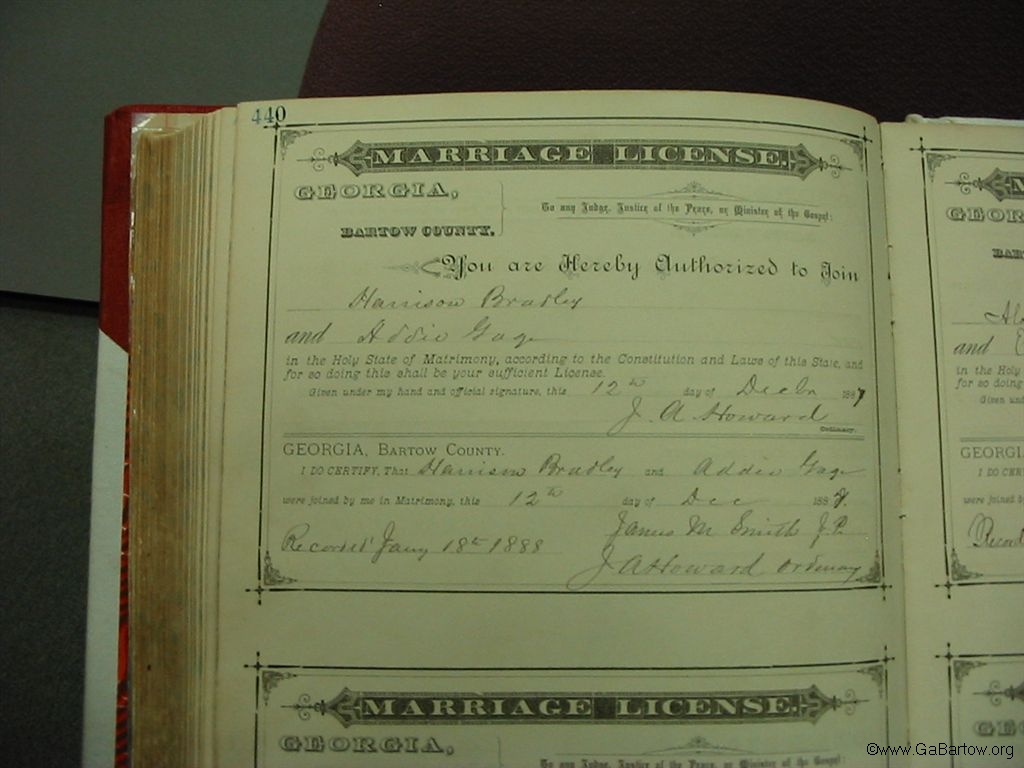 440
MARRIAGE LICENSE.
GEORGIA,
To any Judge, Justice of the Peace, or Minister of the Gospel:
BARTOW COUNTY.
You are Hereby Authorized to Join
Harrison Bradley
and Addie Gage
in the Holy State of Matrimony, according to the Constitution and Laws of this State, and
for so doing this shall be your sufficient License.
Given under my hand and official signature, this 12th day of Decbr 1887
J. A Howard
Ordinary.
GEORGIA, BARTOW COUNTY.
I DO CERTIFY, That Harrison Bradley and Addie Gage
were joined by me in Matrimony, this 12th day of Dec 1887.
James M Smith J.P.
Recorded Jany 18th 1888
J A Howard Ordinary
MARRIAGE LICENSE.
GEORGIA,
To any Judge, Justice of the Peace, or Minister of the Gospel:
and
in the Holy
for so doing
Given und
GEORGIA
I DO CERT
were joined b
©www.GaBartow.org